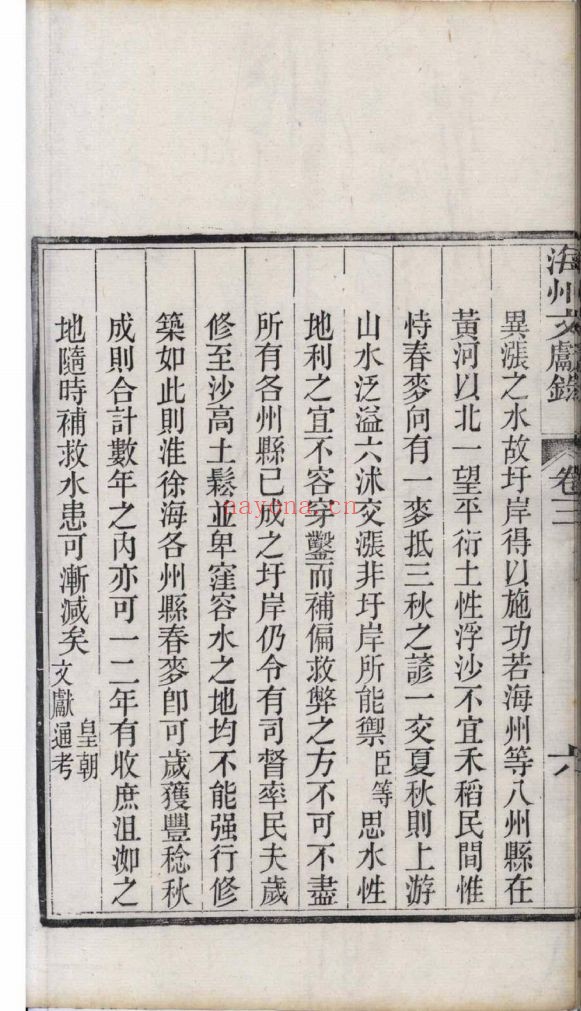 海州文獻錄 卷三 六
異漲之水故圩岸得以施功若海州等八州縣在
黃河以北一望平衍土性浮沙不宜禾稻民間惟
恃春麥向有一麥抵三秋之諺一交夏秋則上游
山水泛溢六沭交漲非圩岸所能禦臣等思水性
地利之宜不容穿鑿而補偏救弊之方不可不盡
所有各州縣已成之圩岸仍令有司督率民夫歲
修至沙高土鬆並卑窪容水之地均不能强行修
築如此則淮徐海各州縣春麥卽可歲獲豐稔秋
成則合計數年之內亦可一二年有收庶沮洳之
地隨時補救水患可漸減矣皇朝文獻通考
nayona.cn